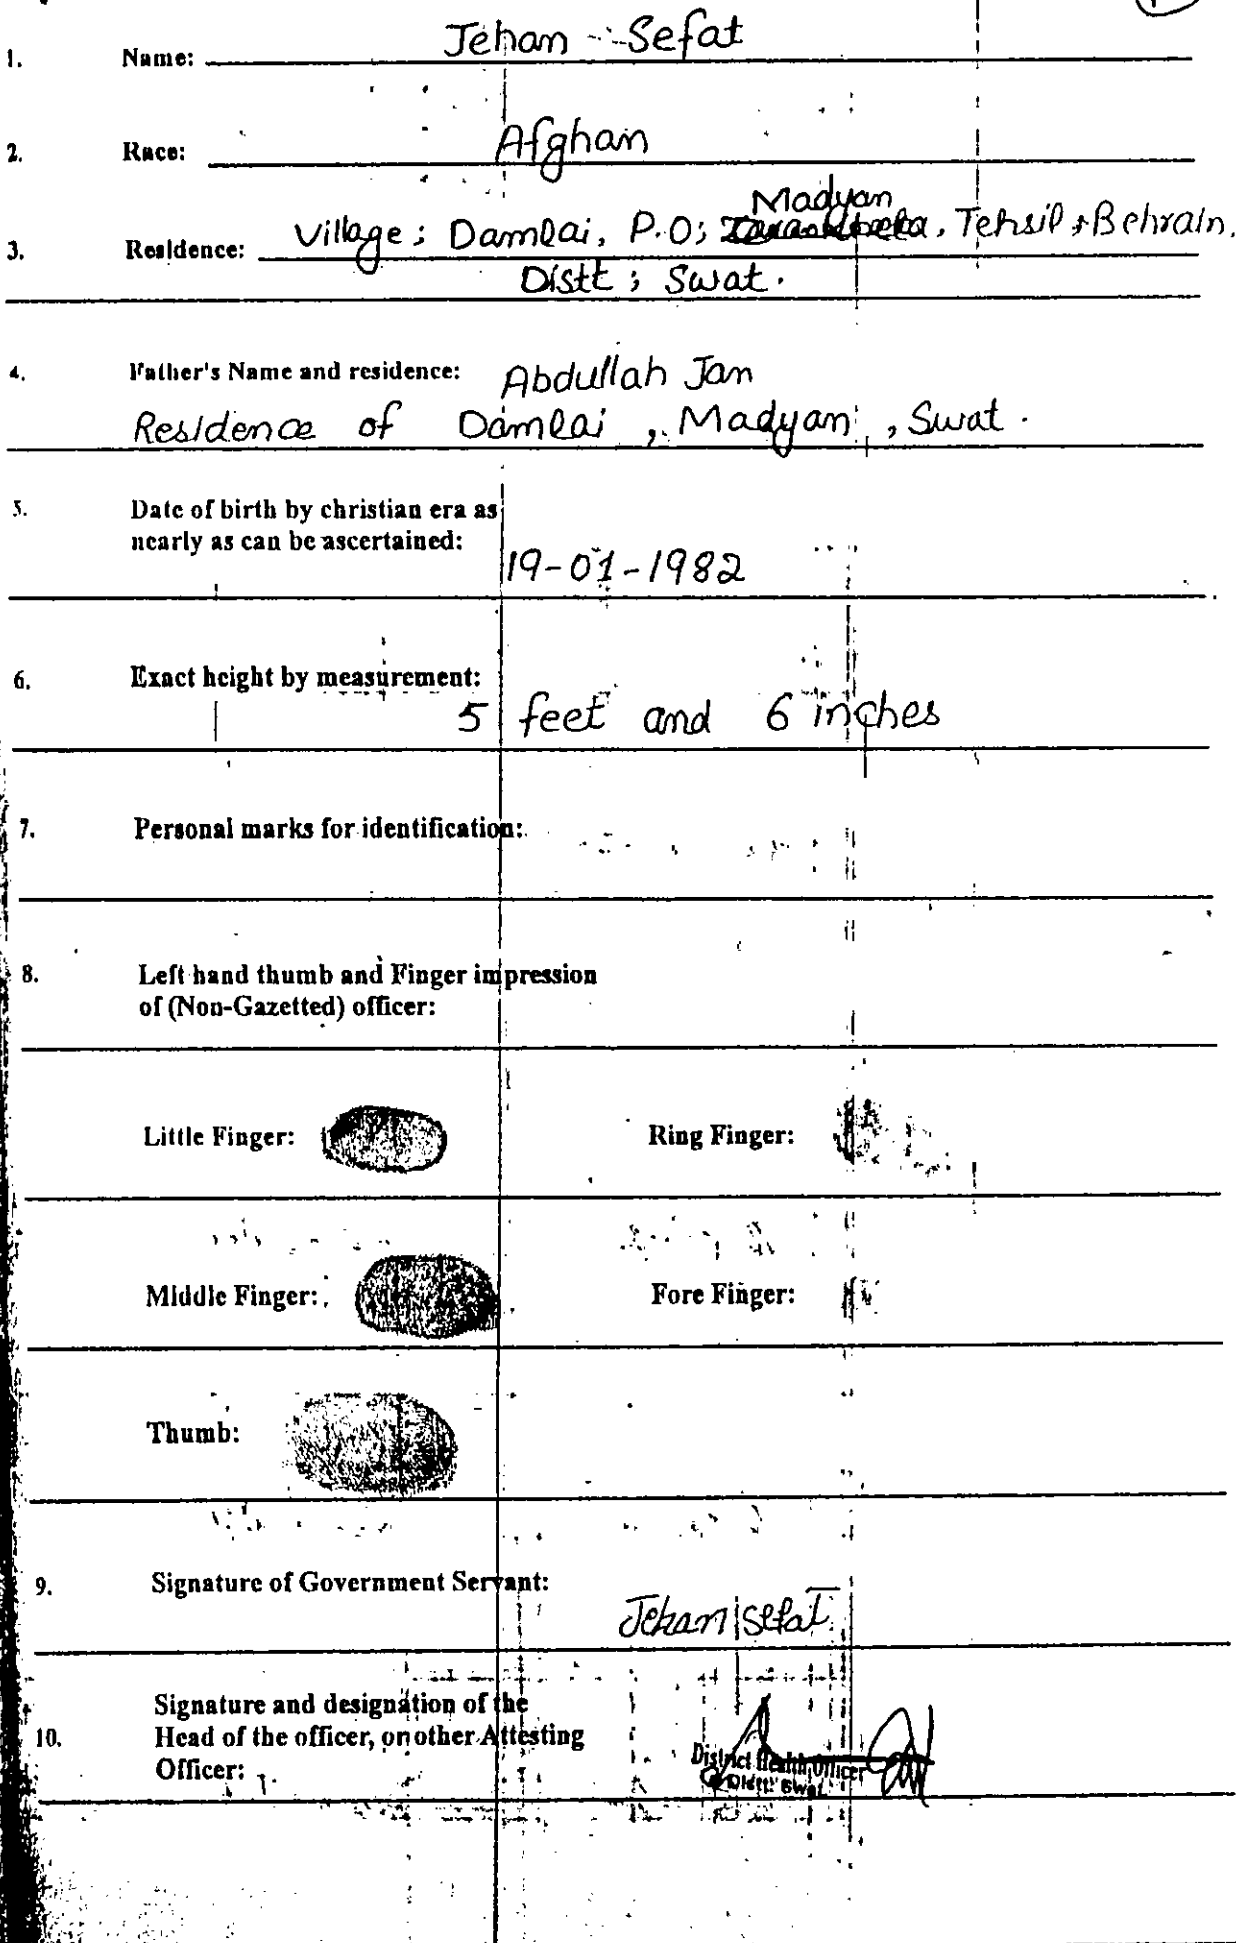 1. Name: Jehan Sefat
2. Race: Afghan
Madyan
3. Residence: Village; Damlai, P.O; , Tehsil; Behrain,
Distt; Swat.
4. Father's Name and residence: Abdullah Jan
Residence of Damlai, Madyan, Swat.
5. Date of birth by christian era as
nearly as can be ascertained:
19-01-1982
6. Exact height by measurement:
5 feet and 6 inches
7. Personal marks for identification:
8. Left hand thumb and Finger impression
of (Non-Gazetted) officer:
Little Finger: Ring Finger:
Middle Finger: Fore Finger:
Thumb:
9. Signature of Government Servant:
Jehan Sefat
Signature and designation of the
10. Head of the officer, or other Attesting
Officer:
District Health Officer
Distt: Swat